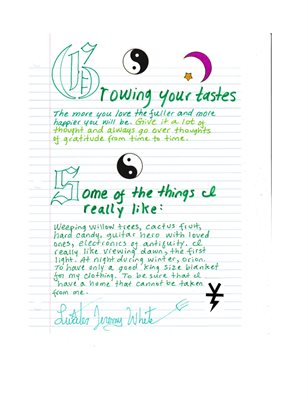 Growing your tastes
The more you love the fuller and more
happier you will be. Give it a lot of
thought and always go over thoughts
of gratitude from time to time.
Some of the things I
really like:
Weeping willow trees, cactus fruit,
hard candy, guitar hero with loved
ones, electronics of antiquity. I
really like viewing dawn, the first
light. At night during winter, orion.
To have only a good king size blanket
for my clothing. To be sure that I
have a home that cannot be taken
from me.
Jeremy White